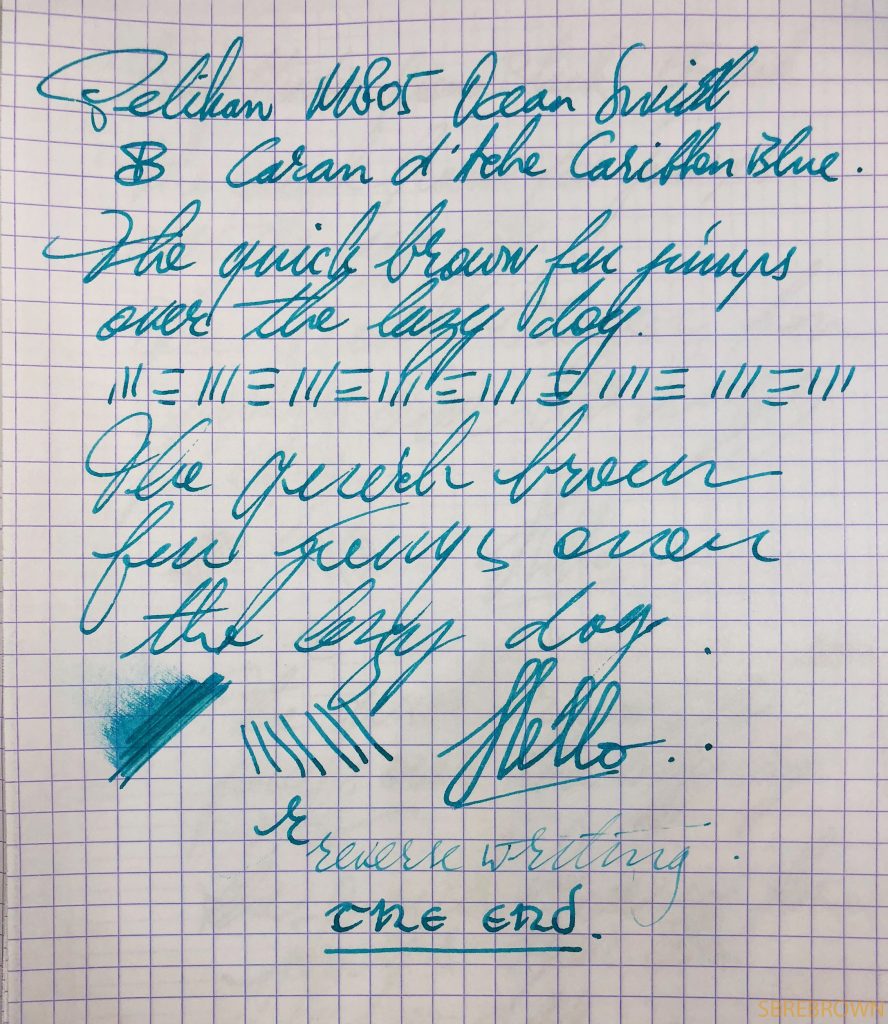 Pelikan M805 Ocean Swirl
B Caran d'Ache Caribben Blue.
The quick brown fox jumps
over the lazy dog.
The quick brown
fox jumps over
the lazy dog.
Hello..
reverse writing.
The End.
SBREBROWN